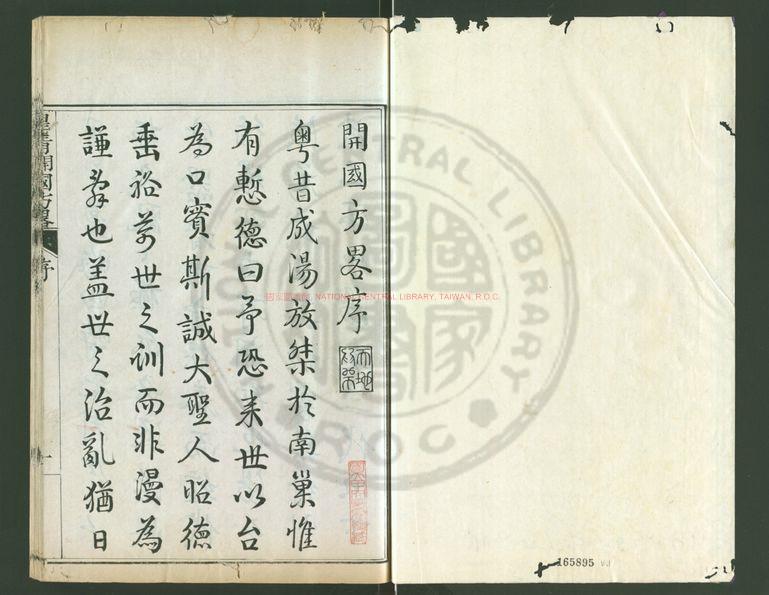 開國方畧序
粵昔成湯放桀於南巢惟
有慙德曰予恐來世以台
為口實斯誠大聖人昭德
垂裕萬世之训而非漫為
謙辭也盖世之治亂猶日
皇清開國方畧
序
一
國家圖書館, NATIONAL CENTRAL LIBRARY, TAIWAN, R.O.C.
CENTRAL LIBRARY
ROC
165895